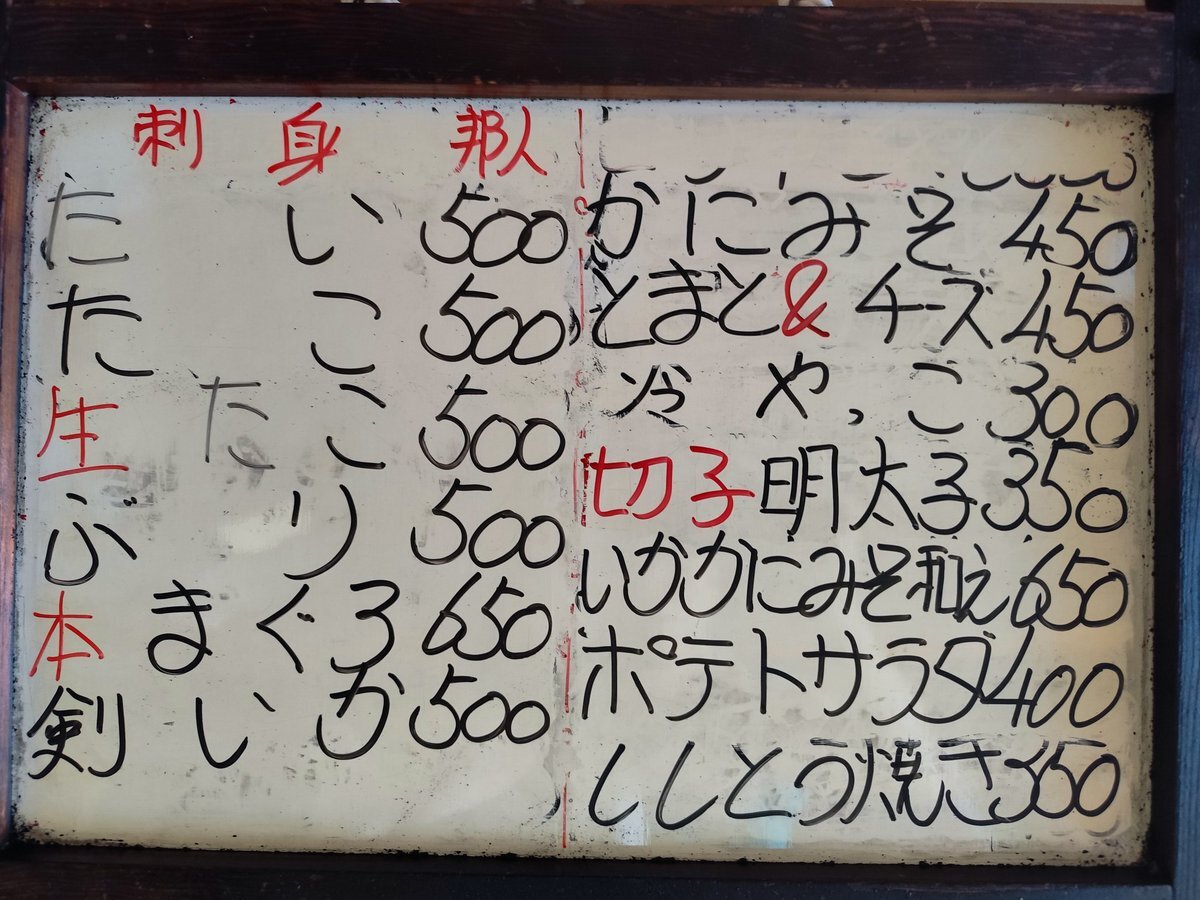 刺身 邦人
たい 500
たこ 500
生たこ 500
ぶり 500
本まぐろ 650
剣いか 500
かにみそ 450
とまと&チーズ 450
冷やっこ 300
切子明太子 350
いかかにみそ和え 650
ポテトサラダ 400
ししとう焼き 350